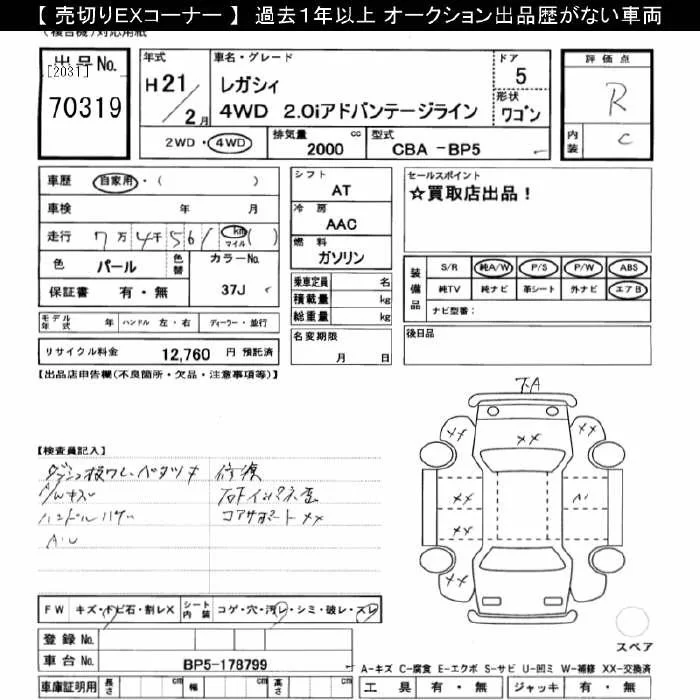 【 売切りEXコーナー 】 過去1年以上 オークション出品歴がない車両
出 品 No. [2031] 70319
年式 H21/2月
車名・グレード レガシィ 4WD 2.0iアドバンテージライン
ドア 5
形状 ワゴン
評 価 点 R
内装 C
2WD・4WD
排気量 2000 cc
型式 CBA -BP5
車歴 自家用・( )
車検 年 月
走行 7万4千561 km マイル ( )
色 パール 色替
カラーNo. 37J
保証書 有・無
シフト AT
冷房 AAC
燃料 ガソリン
乗車定員 名
積載量 kg
総重量 kg
セールスポイント
☆買取店出品！
装備品 S/R 純A/W P/S P/W ABS
純TV 純ナビ 革シート 外ナビ エアB
ナビ型番：
モデル年式 年 ハンドル 左・右 ディーラー・並行
リサイクル料金 12,760 円 預託済
名変期限 月 日
後日品
【出品店申告欄(不良箇所・欠品・注意事項等)】
下A
【検査員記入】
修復
A/Wキズ
コアサポートXX
A・U
XX
XX
XX
XX
XX
XX
FW キズ・トビ石・割レX
シート内装 コゲ・穴・汚レ・シミ・破レ・スレ
登録 No.
車台 No. BP5-178799
スペア
A-キズ C-腐食 E-エクボ S-サビ U-凹ミ W-補修 XX-交換済
車庫証明用 長さ cm 幅 cm 高さ cm
工具 有・無 ジャッキ 有・無